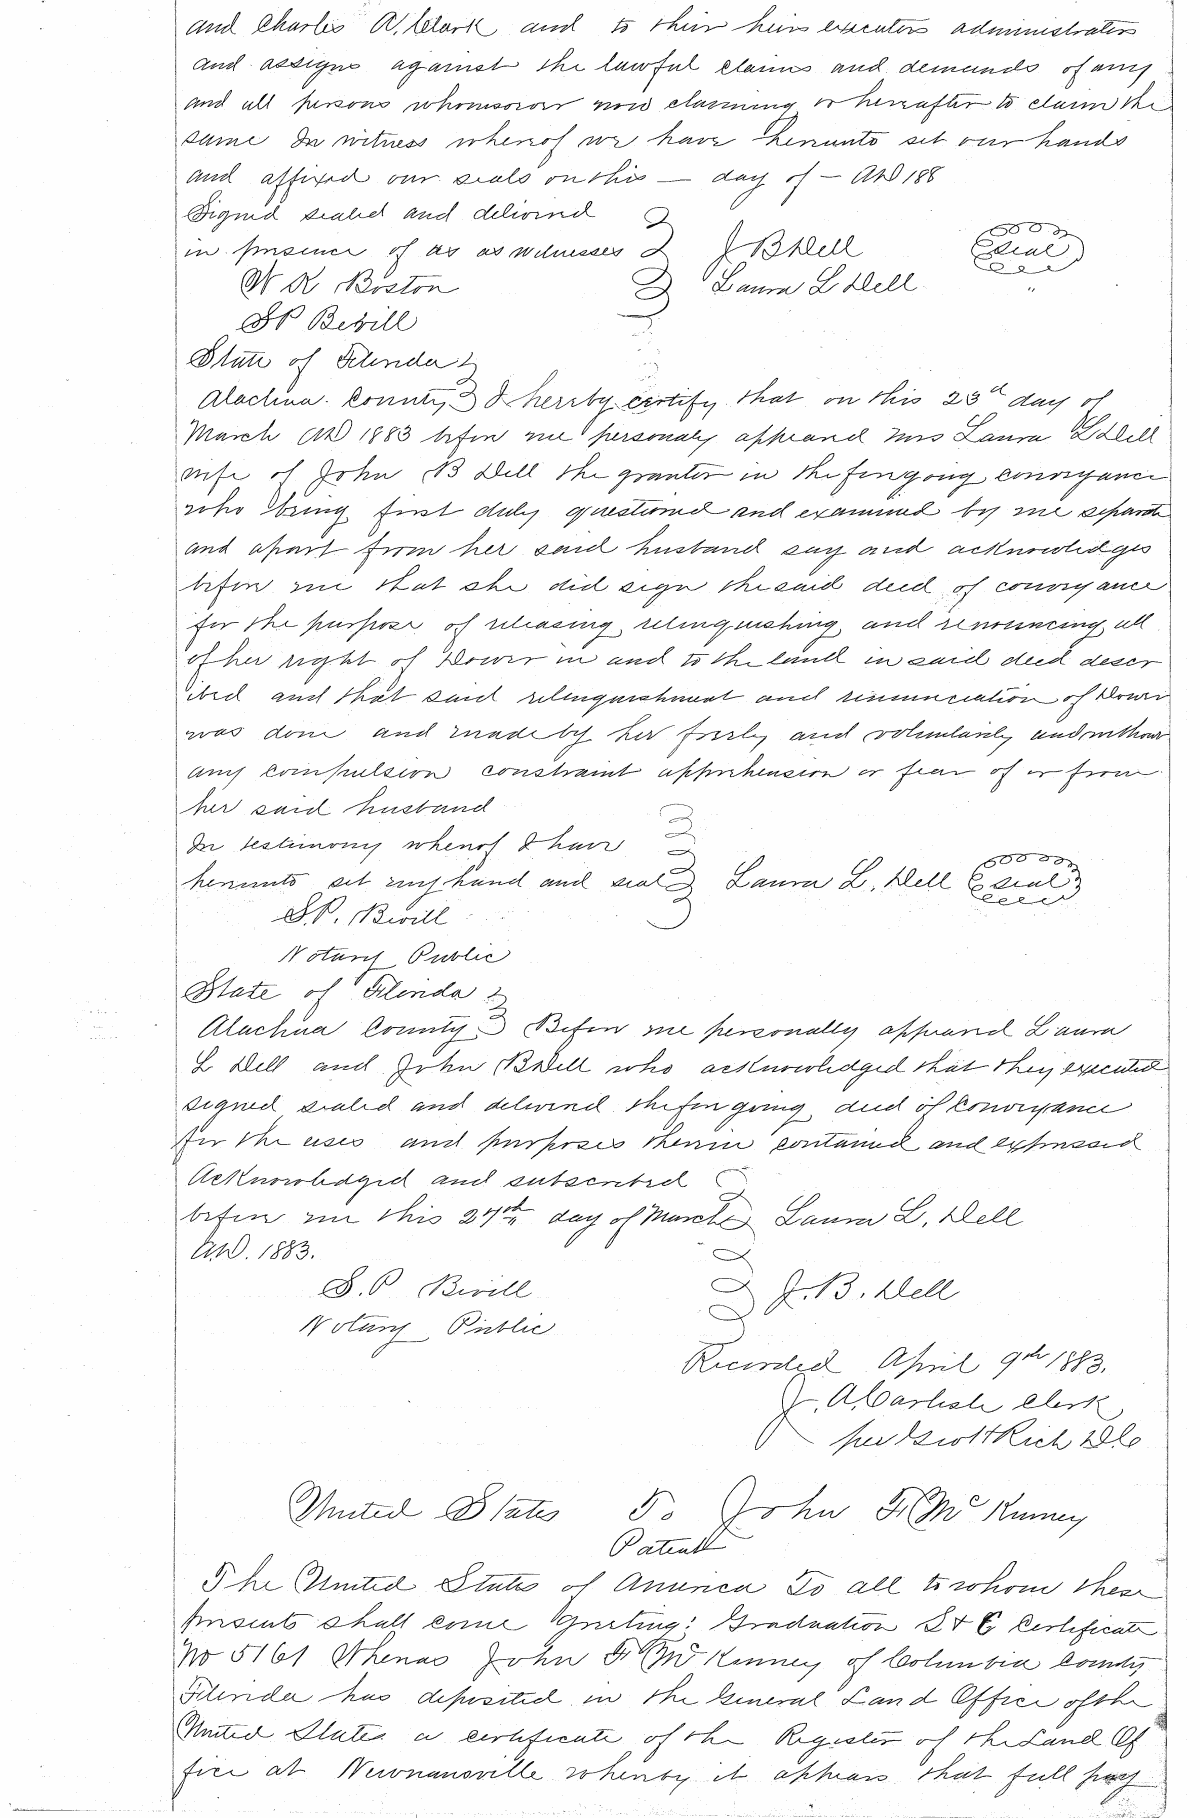 and Charles A. Clark and to their heirs executors administrators
and assigns against the lawful claims and demands of any
and all persons whomsoever now claiming or hereafter to claim the
same In witness whereof we have hereunto set our hands
and affixed our seals on this — day of — AD 188
Signed sealed and delivered
in presence of as as witnesses J B Dell Seal
W R Boston Laura L Dell "
SP Bevill
State of Florida
Alachua County I hereby certify that on this 23d day of
March AD 1883 before me personaly appeared Mrs Laura L Dell
wife of John B Dell the grantor in the foregoing conveyance
who being first duly questioned and examined by me separate
and apart from her said husband say and acknowledges
before me that she did sign the said deed of conveyance
for the purpose of releasing relinquishing and renouncing all
of her right of Dower in and to the land in said deed descr
ibed and that said relinquishment and renunciation of Dower
was done and made by her freely and voluntarily and without
any compulsion constraint apprehension or fear of or from
her said husband
In testimony whereof I have
hereunto set my hand and seal Laura L. Dell Seal
S.P. Bevill
Notary Public
State of Florida
Alachua County Before me personally appeared Laura
L Dell and John B Dell who acknowledged that they executed
signed sealed and delivered the foregoing deed of conveyance
for the uses and purposes therein contained and expressed
Acknowledged and subscribed
before me this 27th day of March Laura L. Dell
AD. 1883.
S. P Bevill J. B. Dell
Notary Public
Recorded April 9th 1883.
J. A. Carlisle Clerk
per Rich DC
United States To John F. Mc Kinney
Patent
The United States of America To all to whom these
presents shall come Greeting: Graduation S & E Certificate
No 5161 Whereas John F. Mc Kinney of Columbia County
Florida has deposited in the General Land Office of the
United States a certificate of the Register of the Land Of
fice at Newnansville whereby it appears that full pay